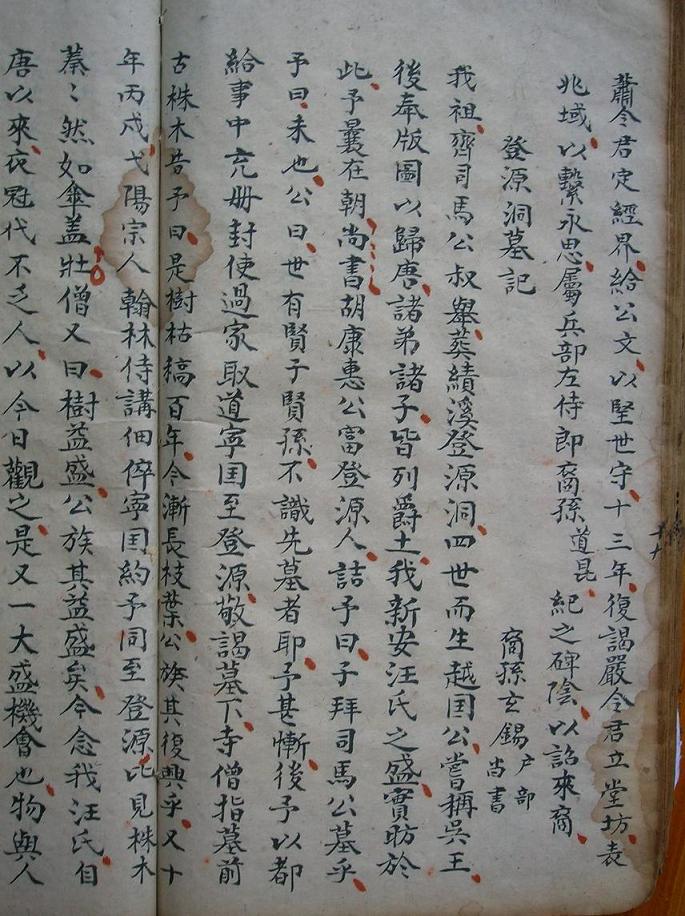 蕭令君定經界給公文以堅世守十三年復謁嚴令君立堂坊表
兆域以繫永思屬兵部左侍郎裔孫道昆紀之碑陰以詔來裔
登源洞墓記
裔孫玄錫戶部尚書
我祖齊司馬公叔舉葬績溪登源洞四世而生越囯公嘗稱吳王
後奉版圖以歸唐諸弟諸子皆列爵土我新安汪氏之盛實昉於
此予曩在朝尚書胡康惠公富登源人詰予曰子拜司馬公墓乎
予曰未也公曰世有賢子賢孫不識先墓者耶予甚慚後予以都
給事中充册封使過家取道寧囯至登源敬謁墓下寺僧指墓前
古株木告予曰是樹枯稿百年今漸長枝葉公族其復興乎又十
年丙戌弋陽宗人翰林侍講佃倅寧囯約予同至登源比見株木
蓁〻然如傘盖壯僧又曰樹益盛公族其益盛矣今念我汪氏自
唐以來衣冠代不乏人以今日觀之是又一大盛機會也物與人